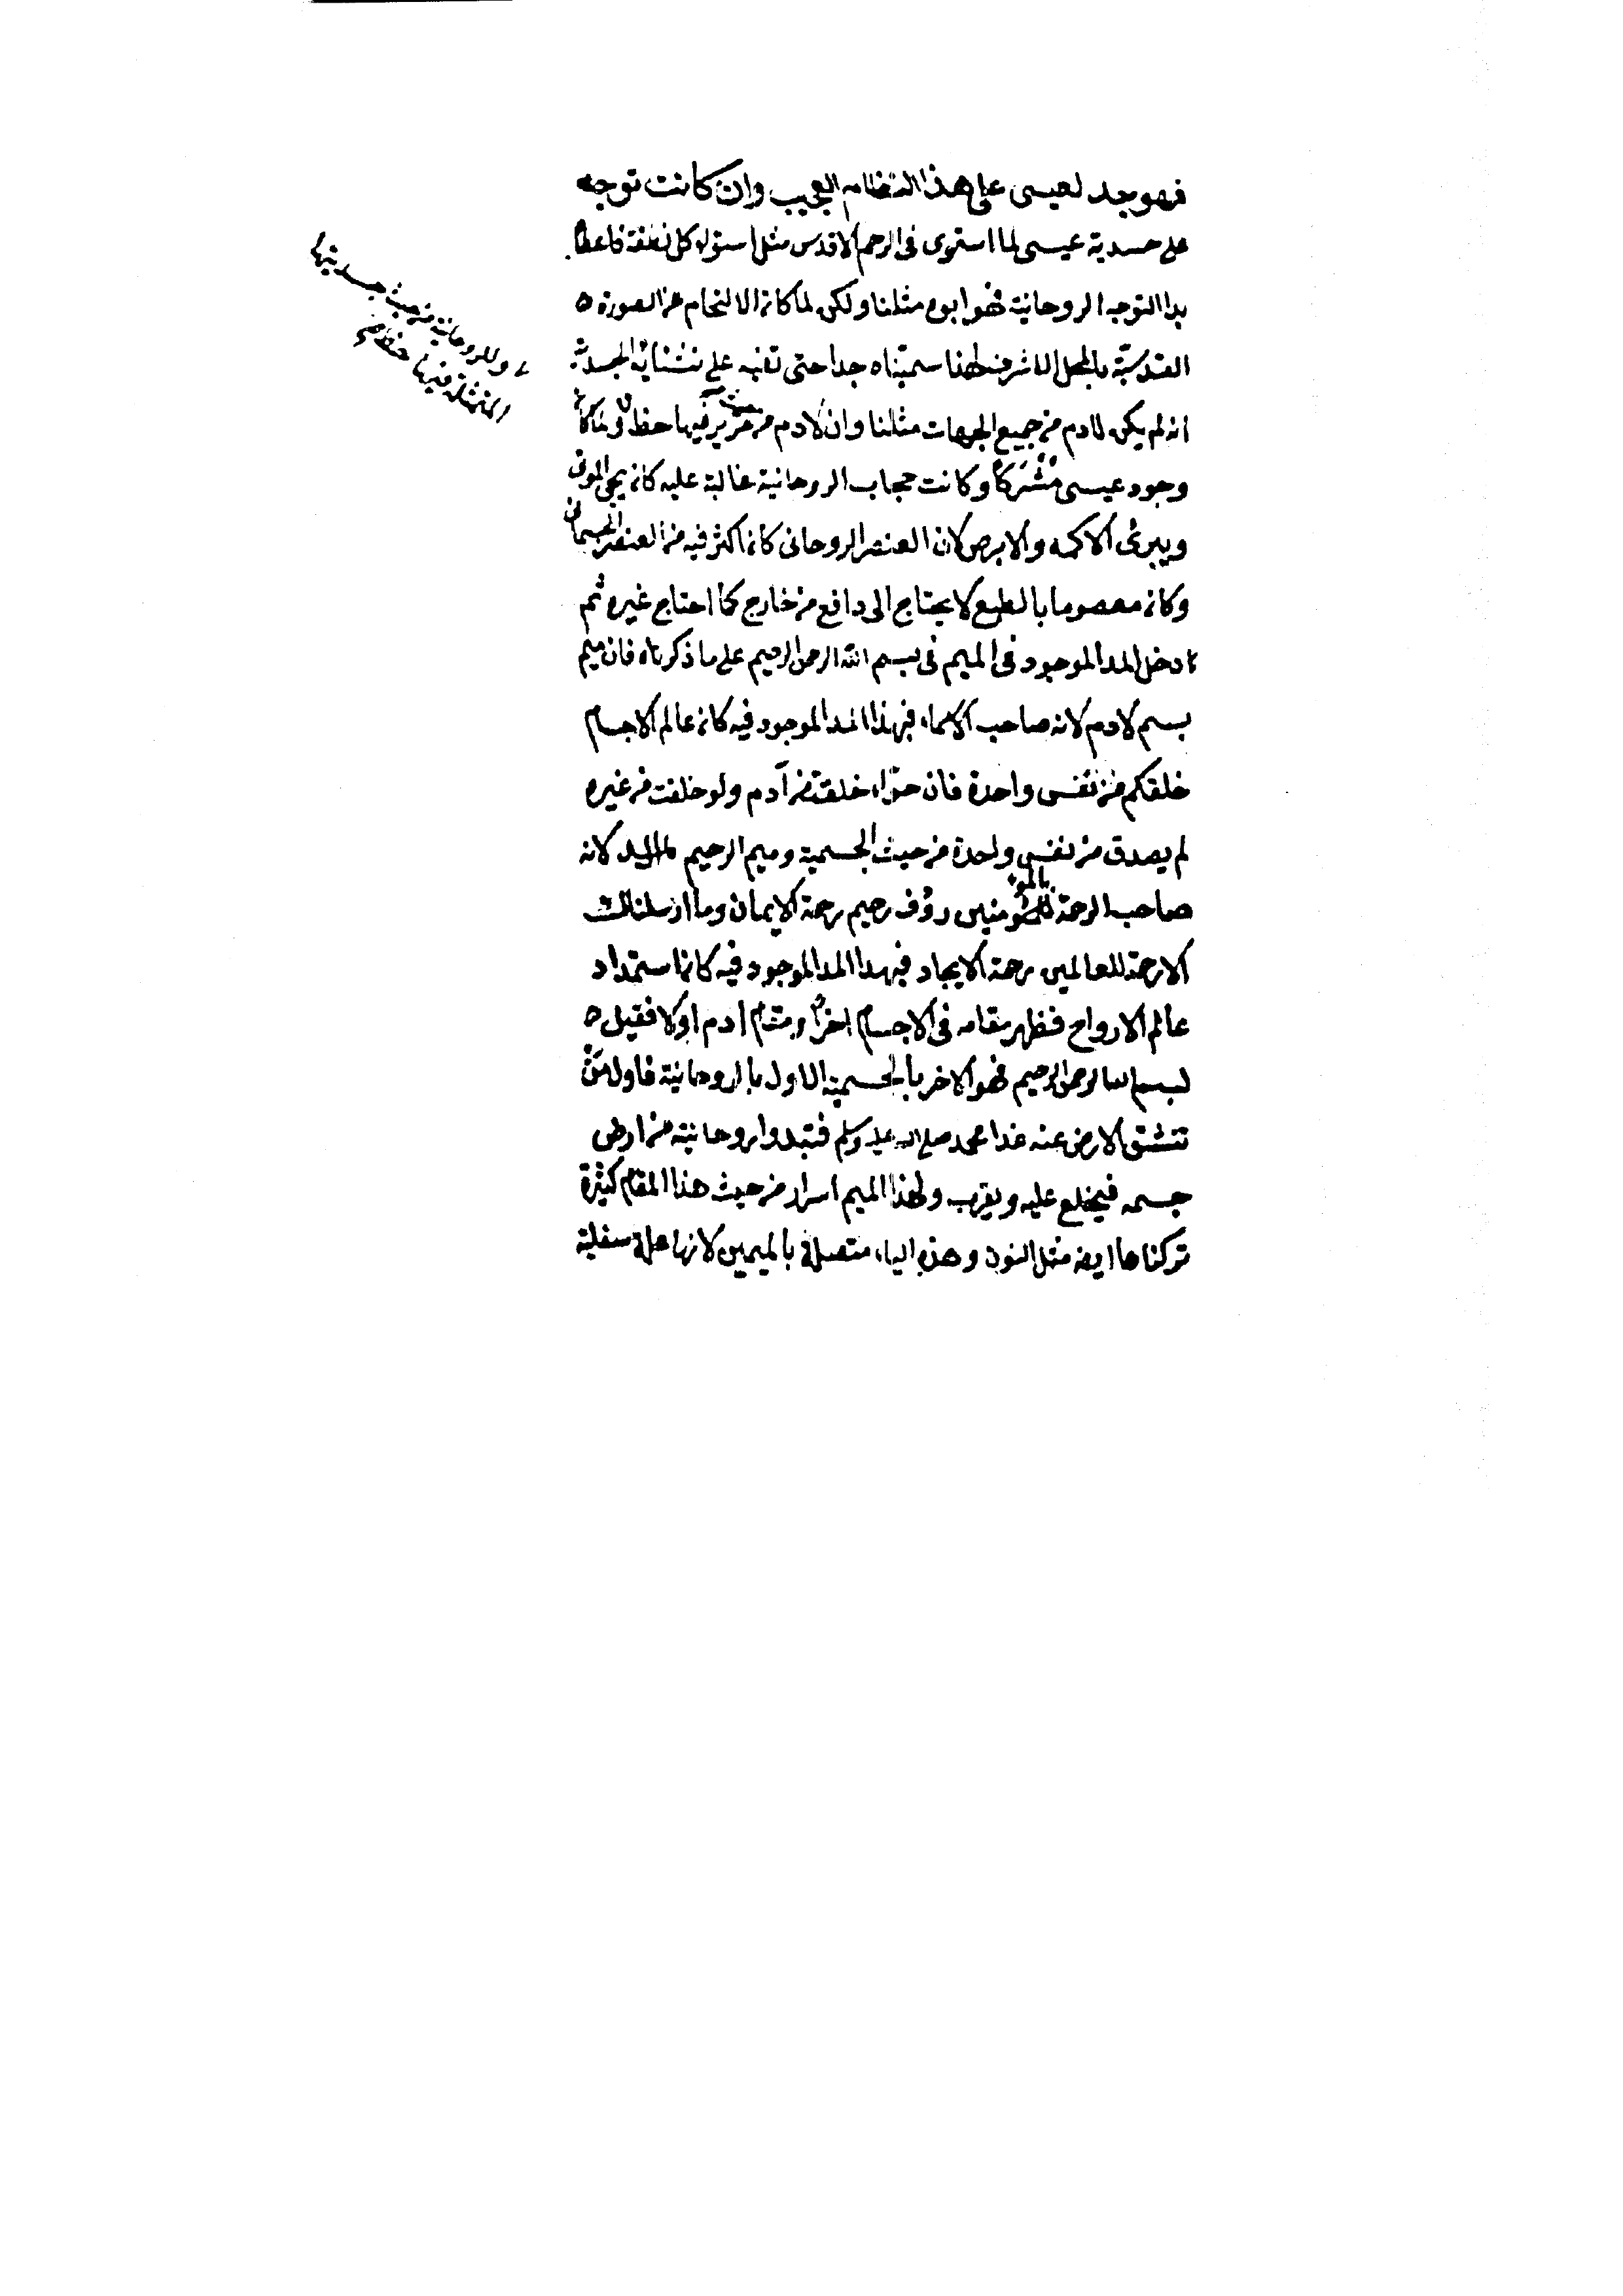 فهو جد لعيسى على هذا النظام العجيب وان كانت توجه
على جسدية عيسى لما استوى فى الرحم الاقدس مثل استواء كل نطفة فاعطا
بدا التوجه الروحانية فهو ابوه مثلنا ولكن لما كان الالتحام عن الصورة
القدسية بالمحل الاشرف لهذا سميناه جدا حتى تنبه على نشأته الجسدية
انه لم يكن لادم من جميع الجهات مثلنا وان لادم من مريم فيها حظا ولما كان
وجود عيسى مشتركا وكانت حجاب الروحانية غالبة عليه كان يحيى الموتى
ويبرئ الاكمه والابرص لان العنصر الروحانى كان اكثر فيه من العنصر الجسمانى
وكان معصوما بالطبع لا يحتاج الى دافع من خارج كما احتاج غيره ثم
ادخل المد الموجود فى الميم فى بسم الله الرحمن الرحيم على ما ذكرناه فان ميم
بسم لادم لانه صاحب الاسماء فبهذا المد الموجود فيه كان عالم الاجسام
خلقكم من نفس واحدة فان حوّاء خلقت من آدم ولو خلقت من غيره
لم يصدق من نفس واحدة من حيث الجسمية وميم الرحيم لمحمد لانه
صاحب الرحمة بالمؤمنين رؤف رحيم رحمة الايمان وما ارسلناك
الا رحمة للعالمين رحمة الايجاد فبهذا المد الموجود فيه كان استمداد
عالم الارواح فظهر مقامه فى الاجسام اخرا ومقام ادم اولا فقيل
بسم الله الرحمن الرحيم فهو الاخر بالجسمية الاول بالروحانية فاول من
تنشق الارض عنه غدا محمد صلى الله عليه وسلم فتبدوا روحانيته من ارض
جسمه فيخلع عليه ويقرب ولهذا الميم اسرار من حيث هذا المقام كثيرة
تركناها ايضا مثل النون وهذه الياء متصلة بالميمين لانها علة سفلية
وللروحانية من حيث جسديتها
المتمثلة فيها حظا